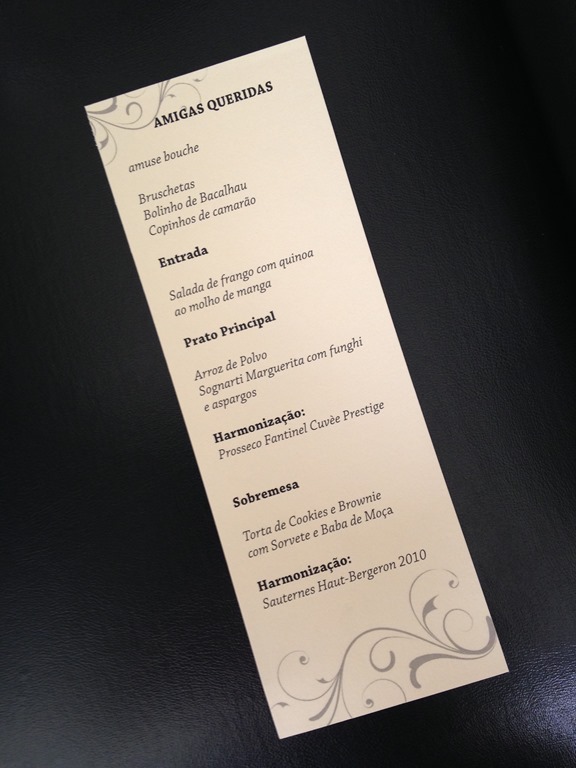 AMIGAS QUERIDAS
amuse bouche
Bruschetas
Bolinho de Bacalhau
Copinhos de camarão
Entrada
Salada de frango com quinoa
ao molho de manga
Prato Principal
Arroz de Polvo
Sognarti Marguerita com funghi
e aspargos
Harmonização:
Prosseco Fantinel Cuvèe Prestige
Sobremesa
Torta de Cookies e Brownie
com Sorvete e Baba de Moça
Harmonização:
Sauternes Haut-Bergeron 2010